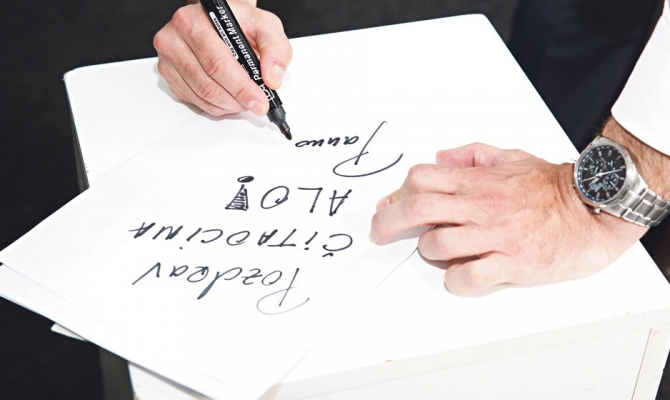 Pozdrav
ČiTAOCiNA
ALO!
Permanent Marker